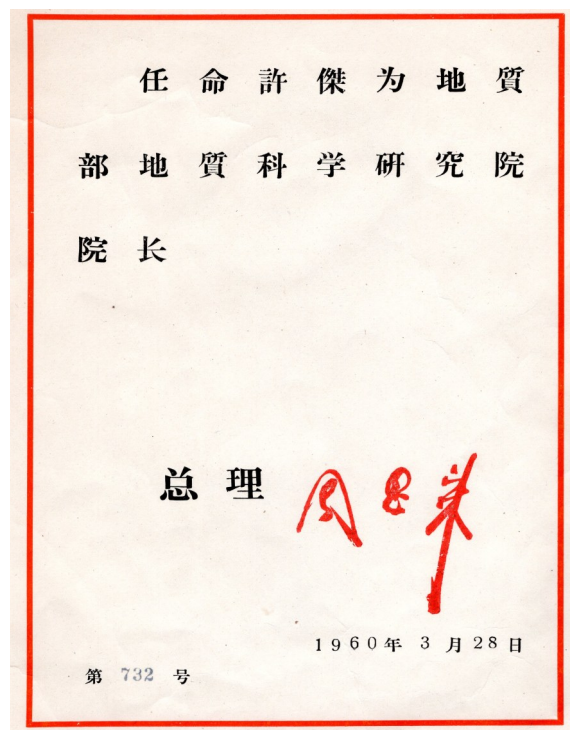 任命許傑为地質
部地質科学研究院
院长
总理 周恩来
1960年3月28日
第732号